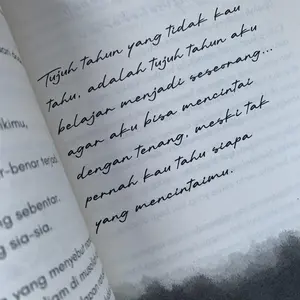 Tujuh tahun yang tidak kau
tahu, adalah tujuh tahun aku
belajar menjadi seseorang...
agar aku bisa mencintai
dengan tenang, meski tak
pernah kau tahu siapa
yang mencintaimu.
kimu,
r-benar terjadi
g sebentar.
g sia-sia.
yang menyebut